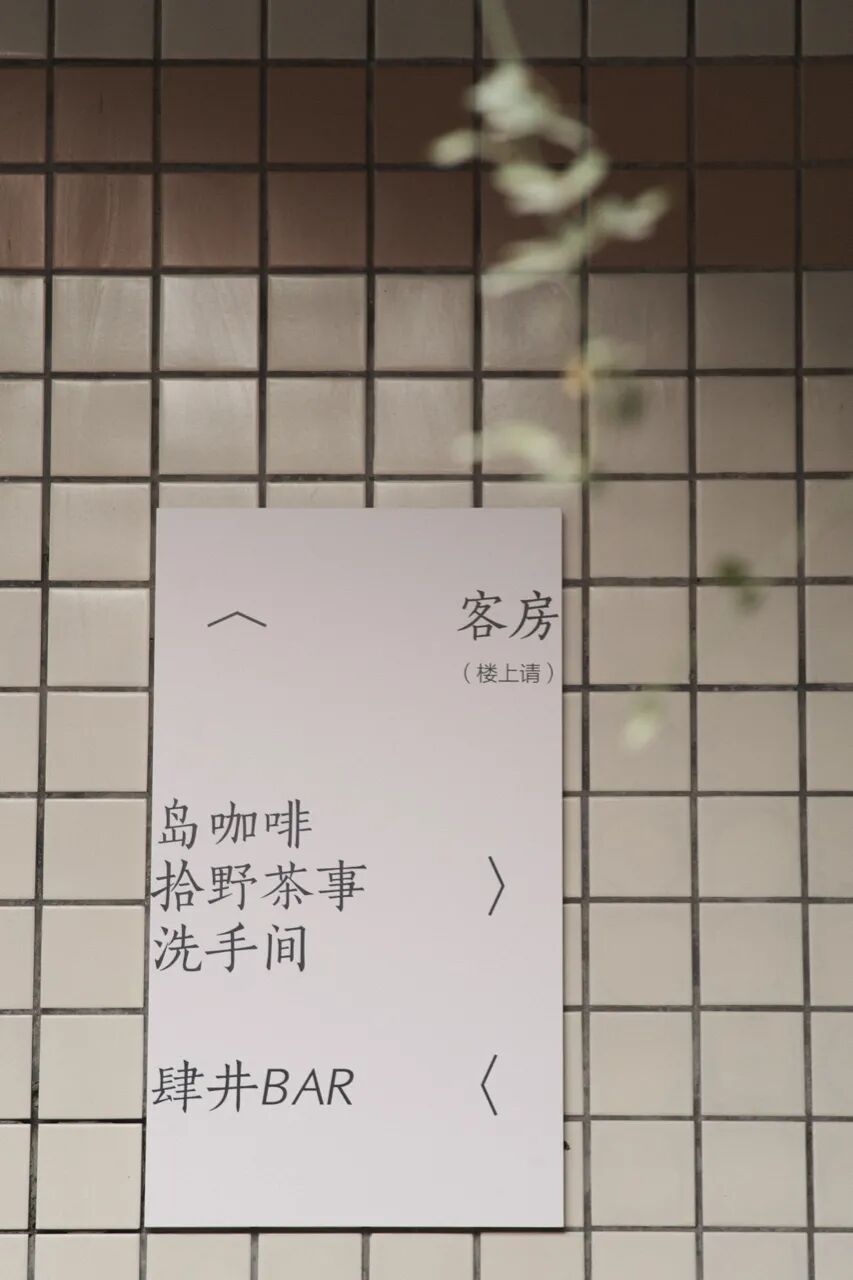 客房
（楼上请）
岛咖啡
拾野茶事
洗手间
肆井BAR